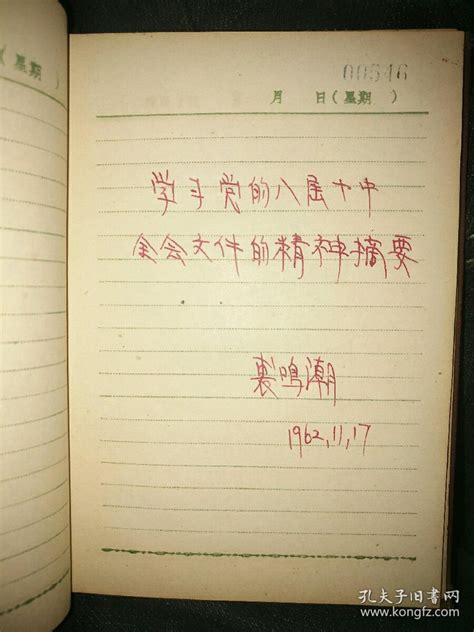 （星期
00546
月 日（星期 ）
学习党的八届十中
全会文件的精神摘要
裘鸣潮
1962,11,17
孔夫子旧书网
www.kongfz.com